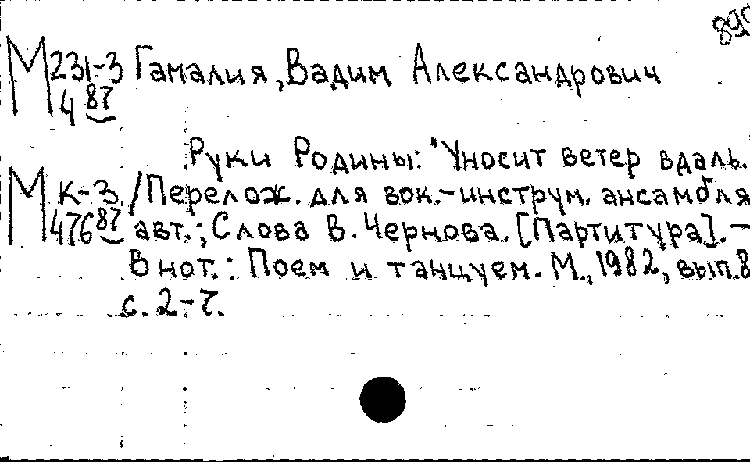 М 231-3 Гамалия, Вадим Александрович
4 87
Руки Родины: "Уносит ветер вдаль.
М К-3 /Перелож. для вок.-инструм. ансамбля
476 87 авт.; Слова В. Чернова. [Партитура]. –
В нот.: Поем и танцуем. М., 1982, вып. 8
с. 2-7.